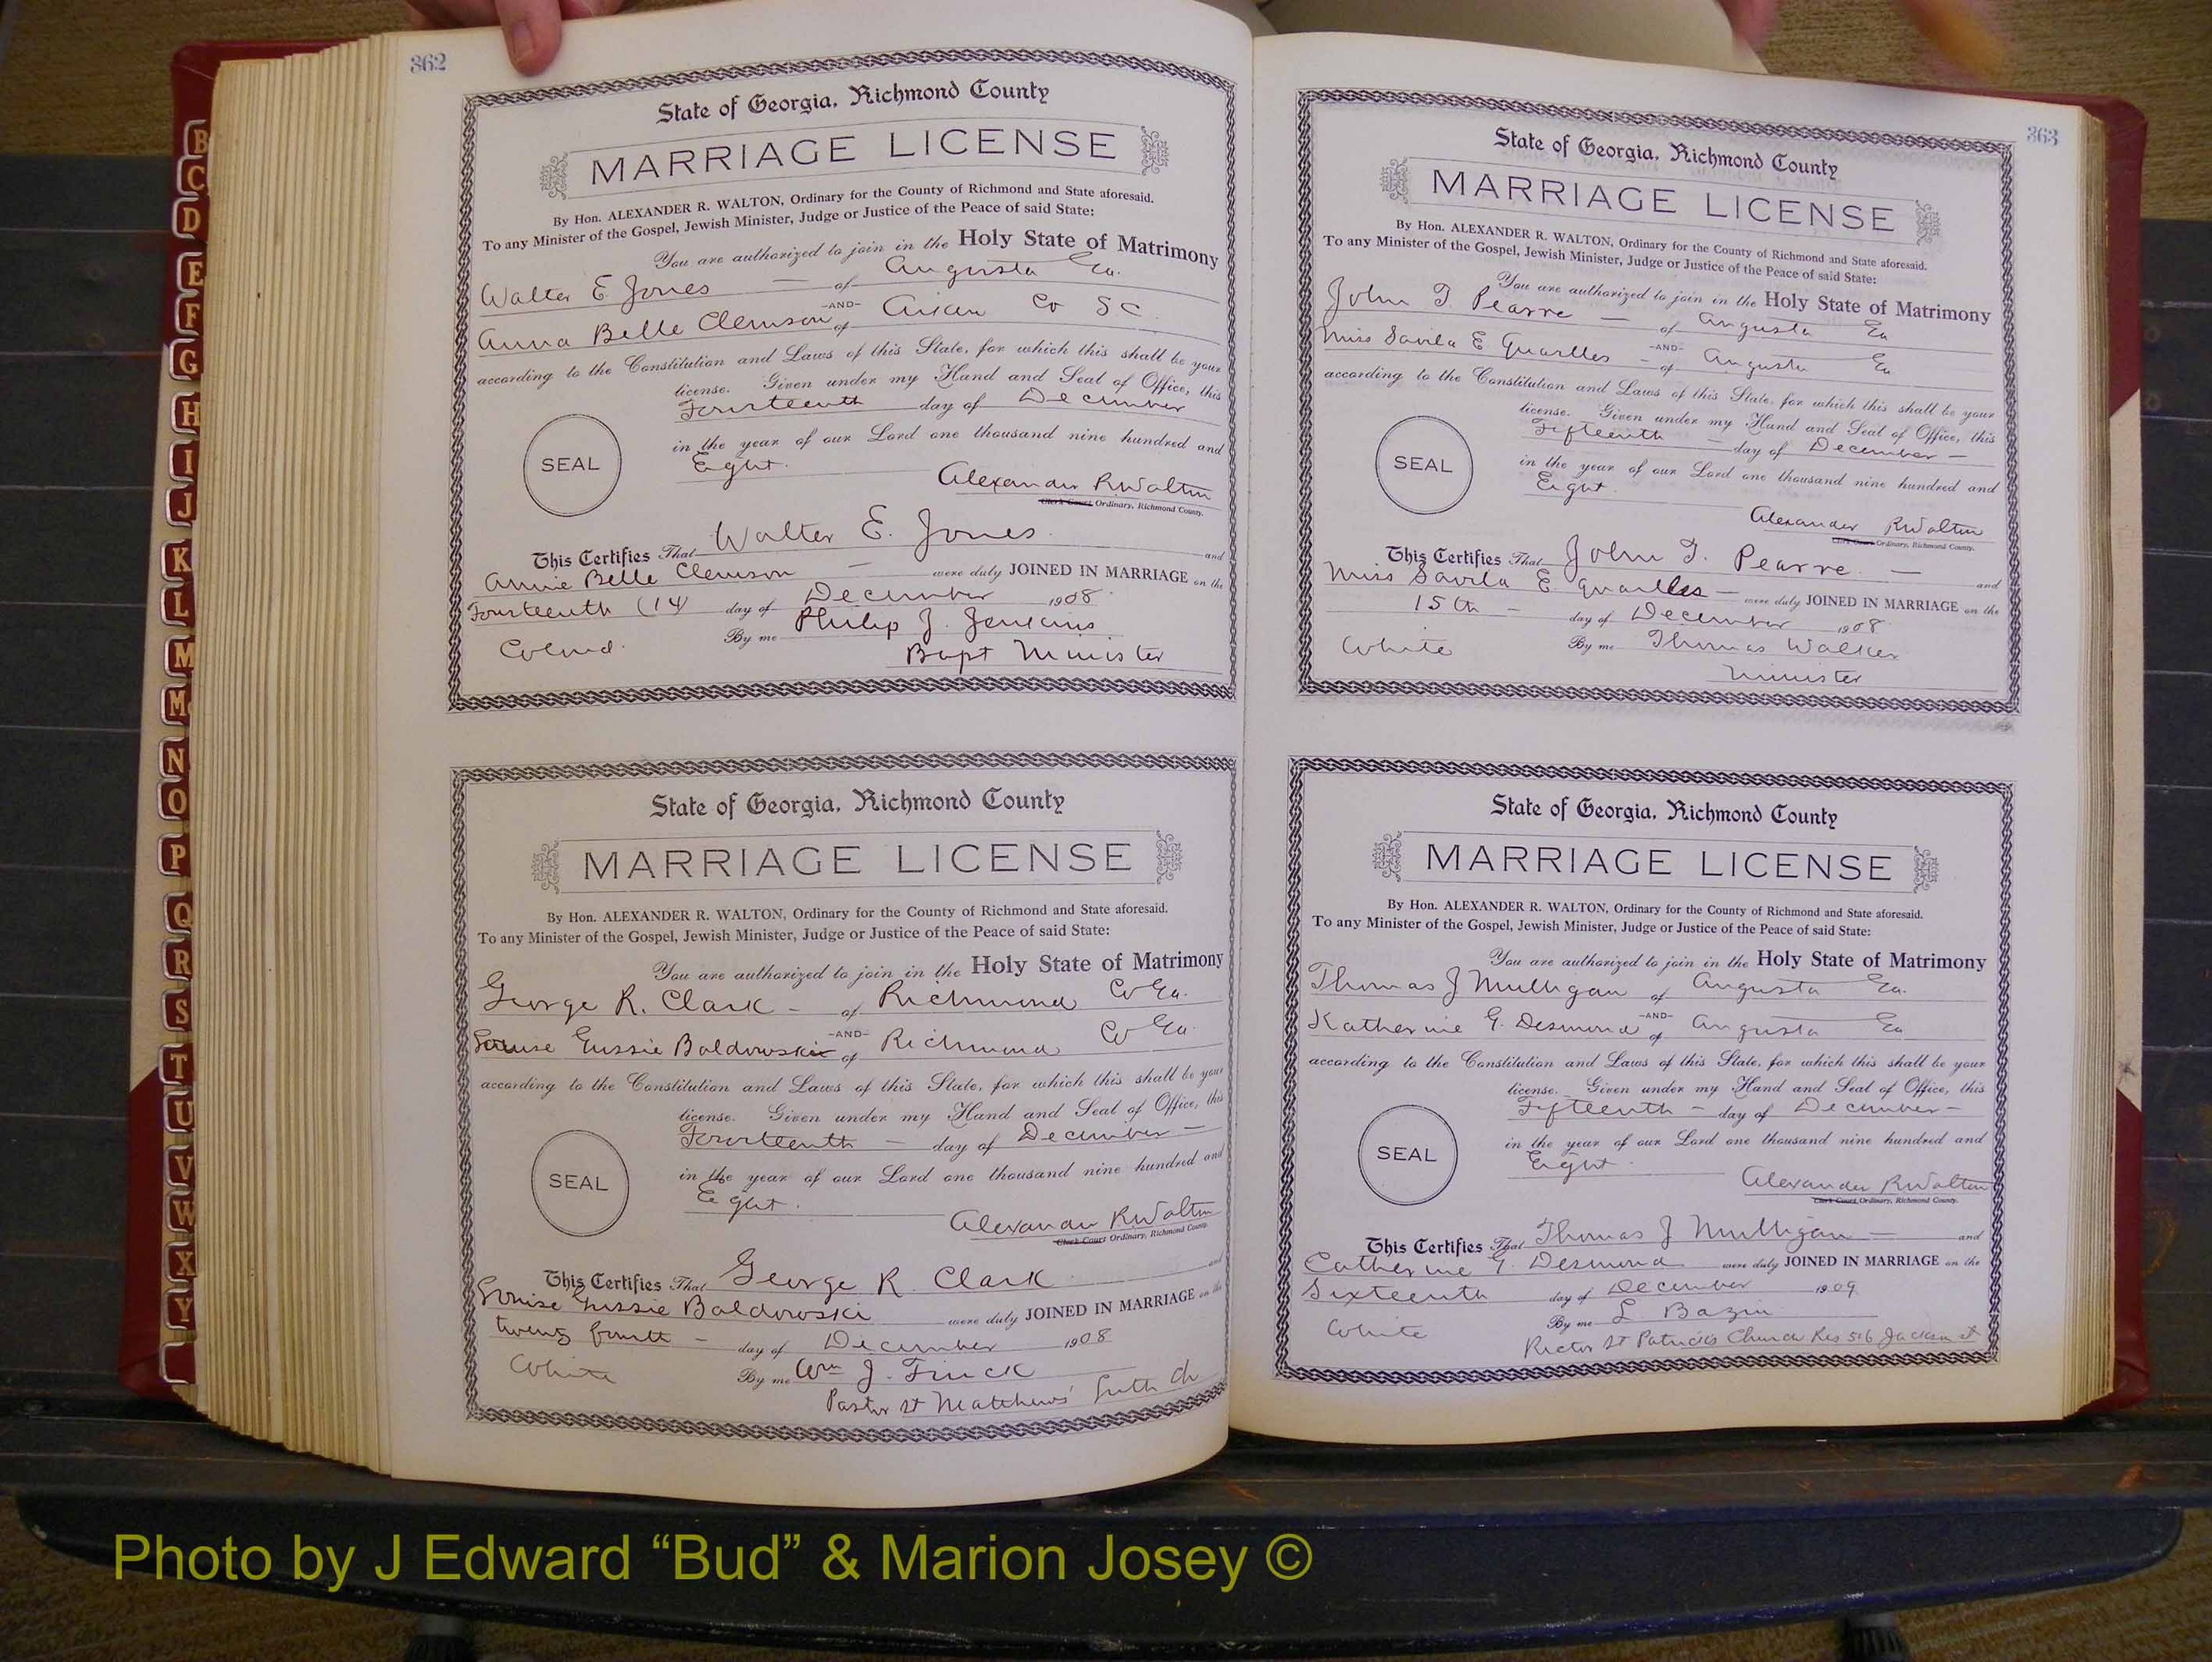 362
State of Georgia, Richmond County
MARRIAGE LICENSE
By Hon. ALEXANDER R. WALTON, Ordinary for the County of Richmond and State aforesaid.
To any Minister of the Gospel, Jewish Minister, Judge or Justice of the Peace of said State:
You are authorized to join in the Holy State of Matrimony
Walter E. Jones — of Augusta Ga.
-AND-
Anna Belle Clemson of Aiken Co SC
according to the Constitution and Laws of this State, for which this shall be your
license. Given under my Hand and Seal of Office, this
Fourteenth day of December
in the year of our Lord one thousand nine hundred and
SEAL
Eight.
Alexander R Walton
Clerk Court Ordinary, Richmond County.
This Certifies That Walter E. Jones and
Annie Belle Clemson — were duly JOINED IN MARRIAGE on the
Fourteenth (14) day of December 1908
Colored. By me Philip J. Jenkins
Bapt Minister
State of Georgia, Richmond County
MARRIAGE LICENSE
By Hon. ALEXANDER R. WALTON, Ordinary for the County of Richmond and State aforesaid.
To any Minister of the Gospel, Jewish Minister, Judge or Justice of the Peace of said State:
You are authorized to join in the Holy State of Matrimony
George R. Clark - of Richmond Co Ga.
-AND-
Louise Gussie Baldowski of Richmond Co Ga
according to the Constitution and Laws of this State, for which this shall be your
license. Given under my Hand and Seal of Office, this
Fourteenth — day of December —
in the year of our Lord one thousand nine hundred and
SEAL
Eight.
Alexander R Walton
Clerk Court Ordinary, Richmond County.
This Certifies That George R. Clark and
Louise Gussie Baldowski were duly JOINED IN MARRIAGE on the
twenty fourth — day of December 1908
White By me Wm J. Finck
Pastor St Matthews' Luth Ch
363
State of Georgia, Richmond County
MARRIAGE LICENSE
By Hon. ALEXANDER R. WALTON, Ordinary for the County of Richmond and State aforesaid.
To any Minister of the Gospel, Jewish Minister, Judge or Justice of the Peace of said State:
You are authorized to join in the Holy State of Matrimony
John T. Pearre — of Augusta Ga
-AND-
Miss Savila E. Quarlles - of Augusta Ga
according to the Constitution and Laws of this State, for which this shall be your
license. Given under my Hand and Seal of Office, this
Fifteenth — day of December —
in the year of our Lord one thousand nine hundred and
SEAL
Eight.
Alexander R Walton
Clerk Court Ordinary, Richmond County.
This Certifies That John T. Pearre. — and
Miss Savila E. Quarlles — were duly JOINED IN MARRIAGE on the
15th — day of December 1908
White By me Thomas Walker
Minister
State of Georgia, Richmond County
MARRIAGE LICENSE
By Hon. ALEXANDER R. WALTON, Ordinary for the County of Richmond and State aforesaid.
To any Minister of the Gospel, Jewish Minister, Judge or Justice of the Peace of said State:
You are authorized to join in the Holy State of Matrimony
Thomas J Mulligan of Augusta Ga.
-AND-
Katherine G. Desmond of Augusta Ga
according to the Constitution and Laws of this State, for which this shall be your
license. Given under my Hand and Seal of Office, this
Fifteenth — day of December —
in the year of our Lord one thousand nine hundred and
SEAL
Eight.
Alexander R Walton
Clerk Court Ordinary, Richmond County.
This Certifies That Thomas J Mulligan — and
Catherine G. Desmond were duly JOINED IN MARRIAGE on the
Sixteenth day of December 1909
White By me L Bazin
Rector St Patricks Church Res 516 Jackson st
B
C
D
E
F
G
H
I
J
K
L
M
Mc
N
O
P
Q
R
S
T
U
V
W
X
Y
Photo by J Edward “Bud” & Marion Josey ©